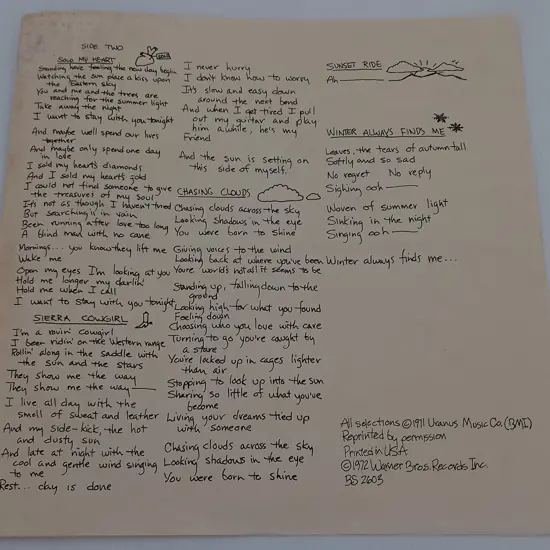 SIDE TWO
SOLD MY HEART
Standing here feeling the new day begin
Watching the sun place a kiss upon
the Eastern sky
You and me and the trees are
reaching for the summer light
Take away the night
I want to stay with you tonight
And maybe well spend our lives
together
And maybe only spend one day
in love
I sold my heart's diamonds
And I sold my heart's gold
I could not find someone to give
the treasures of my soul
It's not as though I haven't tried
But searching is in vain
Been running after love too long
A blind man with no cane
Mornings... you know they lift me
Wake me
Open my eyes I'm looking at you
Hold me longer my darlin'
Hold me when I call
I want to stay with you tonight
SIERRA COWGIRL
I'm a rovin' Cowgirl
I been ridin' on the Western range
Rollin' along in the saddle with
the sun and the stars
They show me the way
They show me the way
I live all day with the
smell of sweat and leather
And my side-kick, the hot
and dusty sun
And late at night with the
cool and gentle wind singing
to me
Rest... day is done
I never hurry
I don't know how to worry
It's slow and easy down
around the next bend
And when I get tired I pull
out my guitar and play
him awhile, he's my
Friend
And the sun is setting on
this side of myself.
CHASING CLOUDS
Chasing clouds across the sky
Looking shadows in the eye
You were born to shine
Giving voices to the wind
Looking back at where you've been
You're world's not all it seems to be
Standing up, falling down to the
ground
Looking high for what you found
Feeling down
Choosing who you love with care
Turning to go you're caught by
a stare
You're locked up in cages lighter
than air
Stopping to look up into the sun
Sharing so little of what you've
become
Living your dreams tied up
with someone
Chasing clouds across the sky
Looking shadows in the eye
You were born to shine
SUNSET RIDE
Ah
WINTER ALWAYS FINDS ME
Leaves, the tears of autumn fall
Softly and so sad
No regret No reply
Sighing ooh
Woven of summer light
Sinking in the night
Singing ooh
Winter always finds me...
All selections ©1971 Uranus Music Co. (BMI)
Reprinted by permission
Printed in U.S.A.
©1972 Warner Bros. Records Inc.
BS 2603